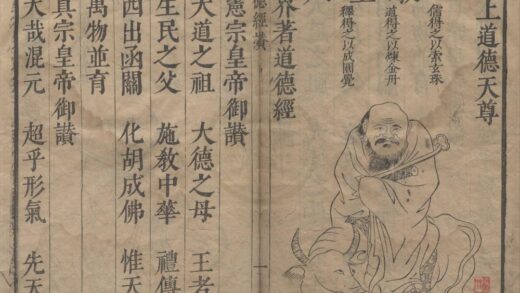 上道德天尊
儒得之以索玄珠
道得之以煉金丹
釋得之以成圓覺
界著道德經
德經讚 一
憲宗皇帝御讚
大道之祖 大德之母 王者
生民之父 施教中華 禮傳
西出函關 化胡成佛 惟天
萬物並育
真宗皇帝御讚
大哉混元 超乎形氣 先天